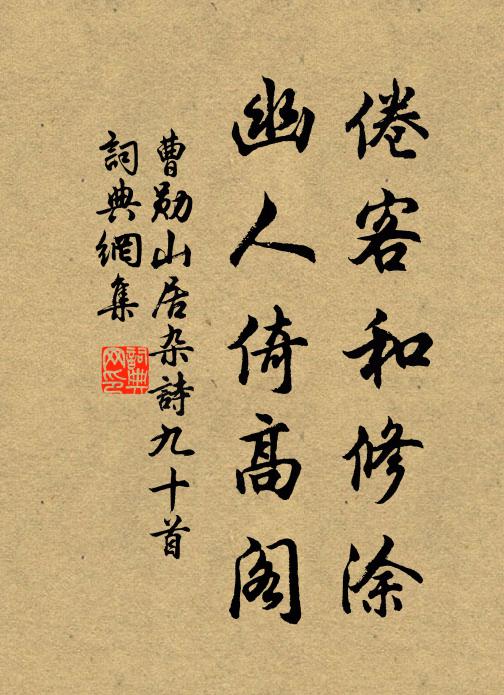 倦客和修涂
幽人倚高阁
曹勋山居杂詩九十首
詞典網集
詞典網印